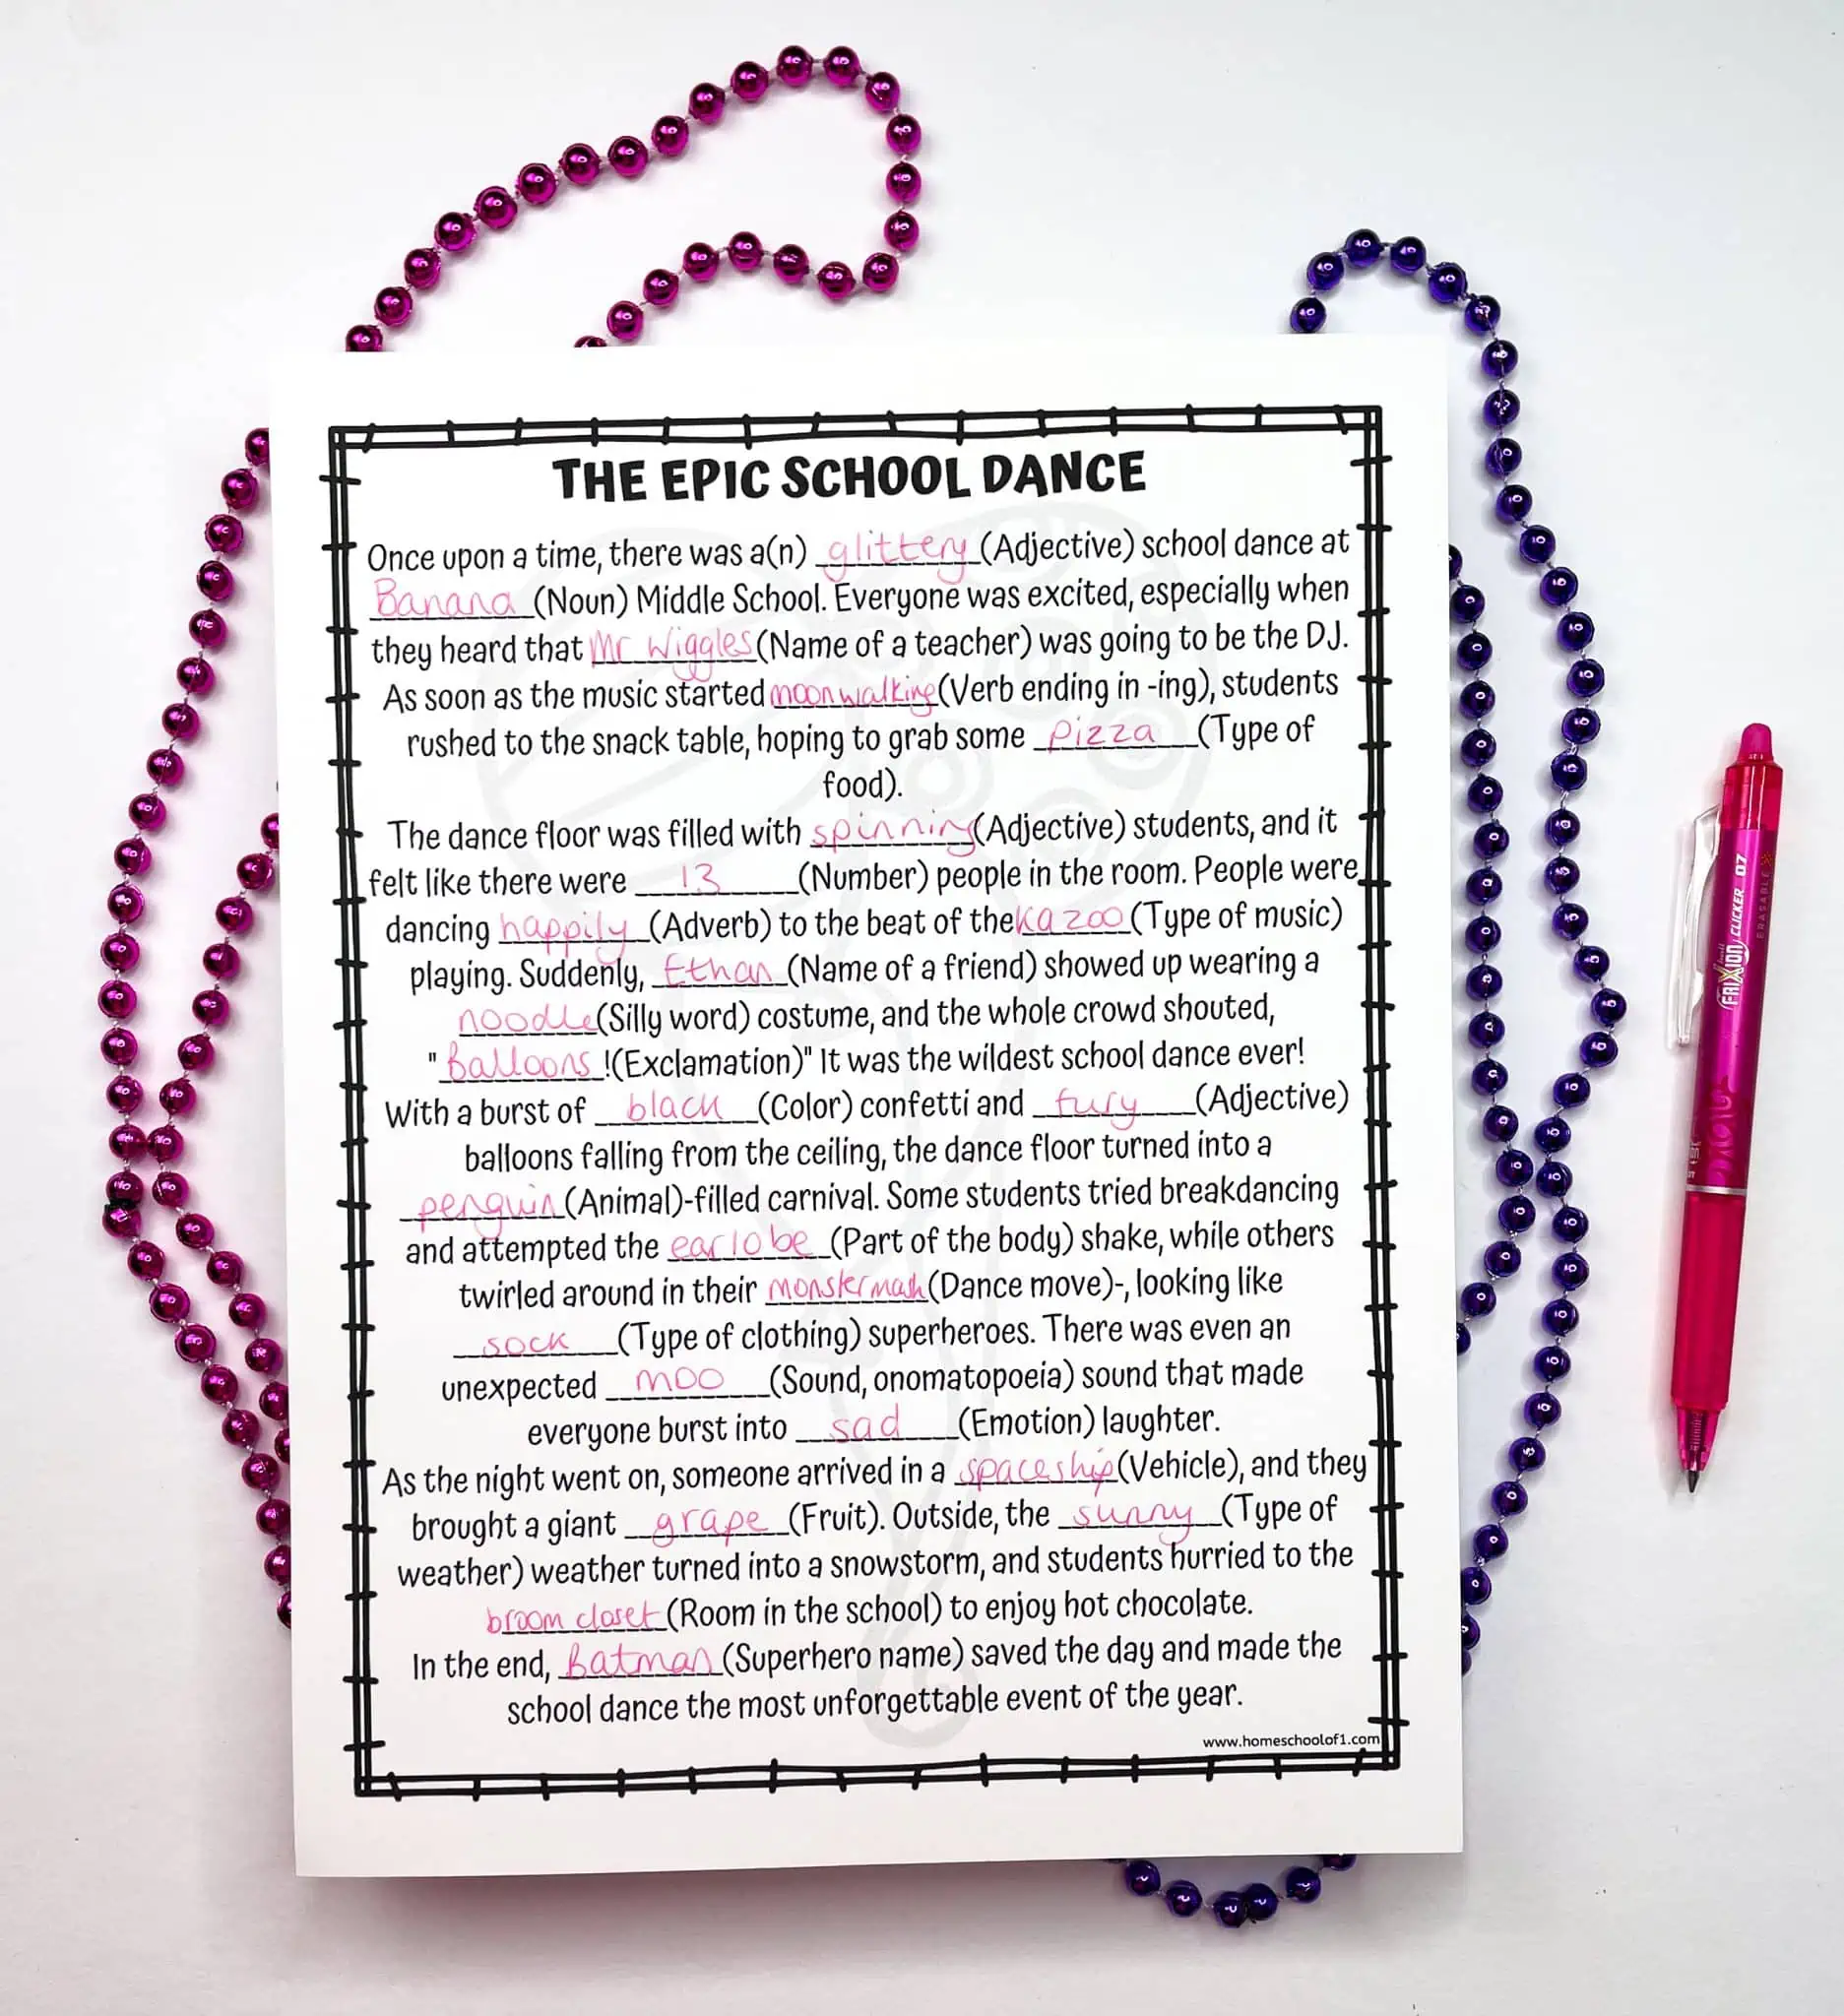 THE EPIC SCHOOL DANCE
Once upon a time, there was a(n) glittery (Adjective) school dance at
Banana (Noun) Middle School. Everyone was excited, especially when
they heard that Mr Wiggles (Name of a teacher) was going to be the DJ.
As soon as the music started moonwalking (Verb ending in -ing), students
rushed to the snack table, hoping to grab some pizza (Type of
food).
The dance floor was filled with spinning (Adjective) students, and it
felt like there were 13 (Number) people in the room. People were
dancing happily (Adverb) to the beat of the kazoo (Type of music)
playing. Suddenly, Ethan (Name of a friend) showed up wearing a
noodle (Silly word) costume, and the whole crowd shouted,
"Balloons!(Exclamation)" It was the wildest school dance ever!
With a burst of black (Color) confetti and fury (Adjective)
balloons falling from the ceiling, the dance floor turned into a
penguin (Animal)-filled carnival. Some students tried breakdancing
and attempted the earlobe (Part of the body) shake, while others
twirled around in their monster mash (Dance move)-, looking like
sock (Type of clothing) superheroes. There was even an
unexpected moo (Sound, onomatopoeia) sound that made
everyone burst into sad (Emotion) laughter.
As the night went on, someone arrived in a spaceship (Vehicle), and they
brought a giant grape (Fruit). Outside, the sunny (Type of
weather) weather turned into a snowstorm, and students hurried to the
broom closet (Room in the school) to enjoy hot chocolate.
In the end, Batman (Superhero name) saved the day and made the
school dance the most unforgettable event of the year.
www.homeschoolof1.com
FRIXION CLICKER 07
ERASABLE
PILOT